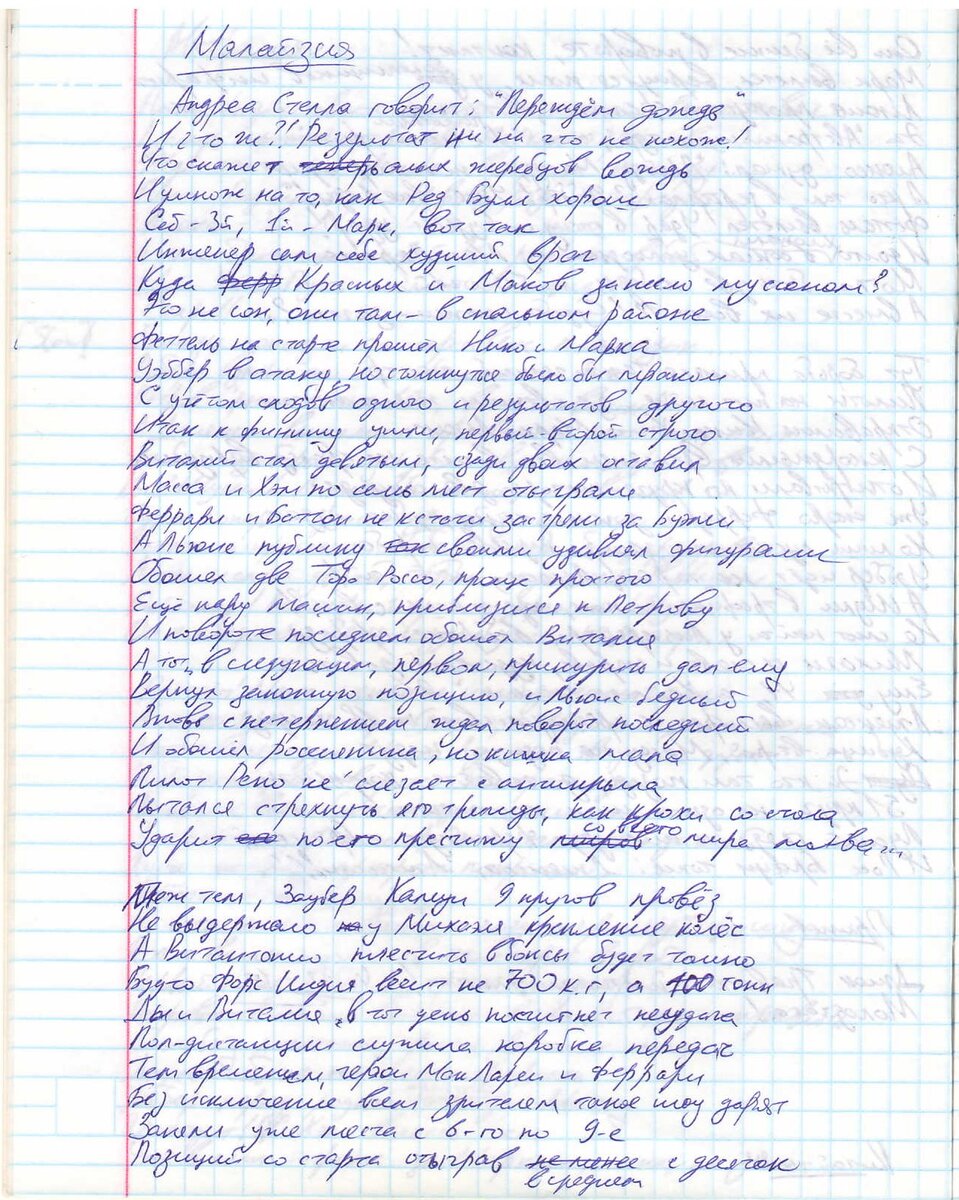 Малайзия
Андреа Стелла говорит: "Переждём дождь"
И что ж?! Результат ни на что не похож!
Что скажет алых жеребцов вождь
И умнож на то, как Ред Булл хорош
Себ - 3й, 1й - Марк, вот так
Инженер сам себе худший враг
Куда Красных и Маков занесло муссоном?
Это не сон, они там - в спальном районе
Феттель на старте прошёл Нико и Марка
Уэббер в атаку, но столкнуться было бы мраком
С учётом сходов одного и результатов другого
Итак к финишу ушли, первый-второй строго
Виталий стал девятым, сзади двоих оставил
Масса и Хэм по семь мест отыграли
Феррари и Баттон не кстати застряли за Буэми
А Льюис публику своими удивлял фигурами
Обошёл две Торо Россо, проще простого
Ещё пару машин, приблизился к Петрову
И повороте последнем обошёл Виталия
А тот, в следующем, первом, прикурить дал ему
Вернул законную позицию, и Льюис бедный
Вновь с нетерпением ждал поворот последний
И обошёл россиянина, но кишка мала
Пилот Рено не слезает с антикрыла
Пытался стряхнуть его трижды, как крохи со стола
Ударит по его престижу со всего мира молва...
Меж тем, Заубер Камуи 9 кругов провёз
Не выдержало у Михаэля крепление колёс
А Витантонио плестись в боксы будет томно
Будто Форс Индия весит не 700 кг, а 100 тонн
Да и Виталия в тот день постигнет неудача
Пол-дистанции служила коробка передач
Тем временем, герои МакЛарен и Феррари
Без исключение всем зрителем такое шоу дарят
Заняли уже места с 6-го по 9-е
Позиций со старта отыграв в среднем с десяток